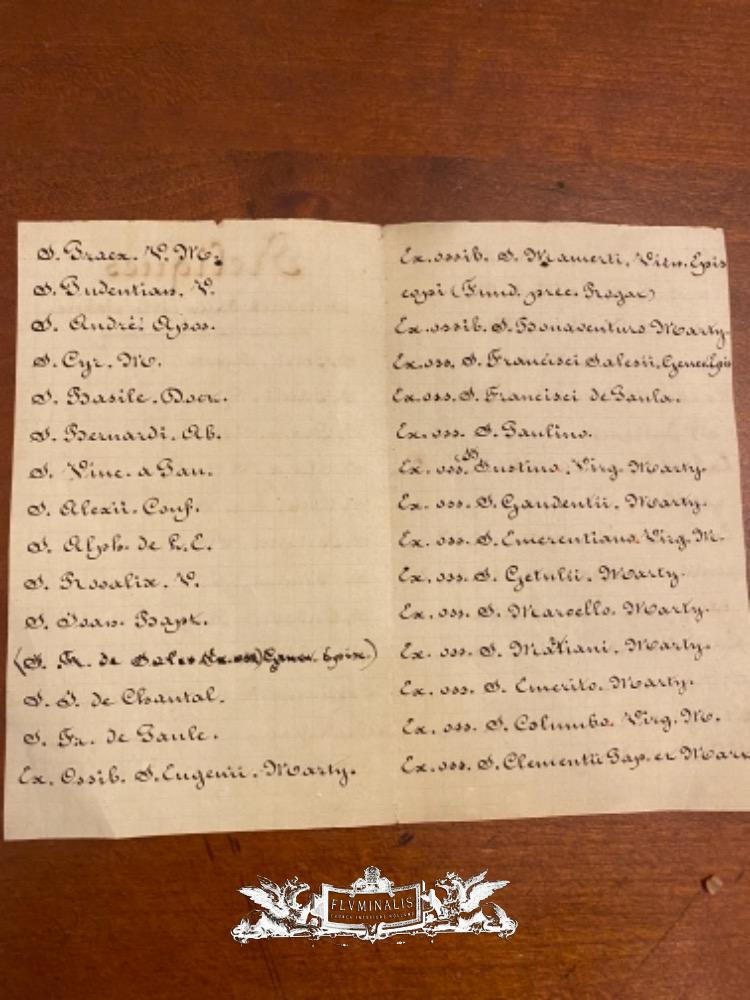 S. Prax. V. M.
S. Pudentian. V.
S. André. Apos.
S. Cyr. M.
S. Basile. Doct.
S. Bernardi. Ab.
S. Vinc. a Pau.
S. Alexii. Conf.
S. Alph. de L.
S. Rosalix. V.
S. Joan. Bapt.
(S. Fr. de Sales (Ex. oss) Genev. Epis.)
S. J. de Chantal.
S. Fr. de Paule.
Ex. Ossib. S. Eugenii. Marty.
Reliques
Ex. ossib. S. Mamerti, Epis
copi (Fund. prec. Rogat)
Ex. ossib. S. Bonaventura Marty.
Ex. oss. S. Francisci Salesii, Genev. Epis
Ex. oss. S. Francisci de Paula.
Ex. oss. S. Paulino.
Ex. oss. S. Justina, Virg. Marty.
Ex. oss. S. Gaudentii. Marty.
Ex. oss. S. Emerentiana. Virg. M.
Ex. oss. S. Getulii. Marty.
Ex. oss. S. Marcello. Marty.
Ex. oss. S. Marty.
Ex. oss. S. Emerito. Marty.
Ex. oss. S. Columba. Virg. M.
Ex. oss. S. Clementii Pap. et Mart
FLVMINALIS
CHURCH INTERIORS HOLLAND